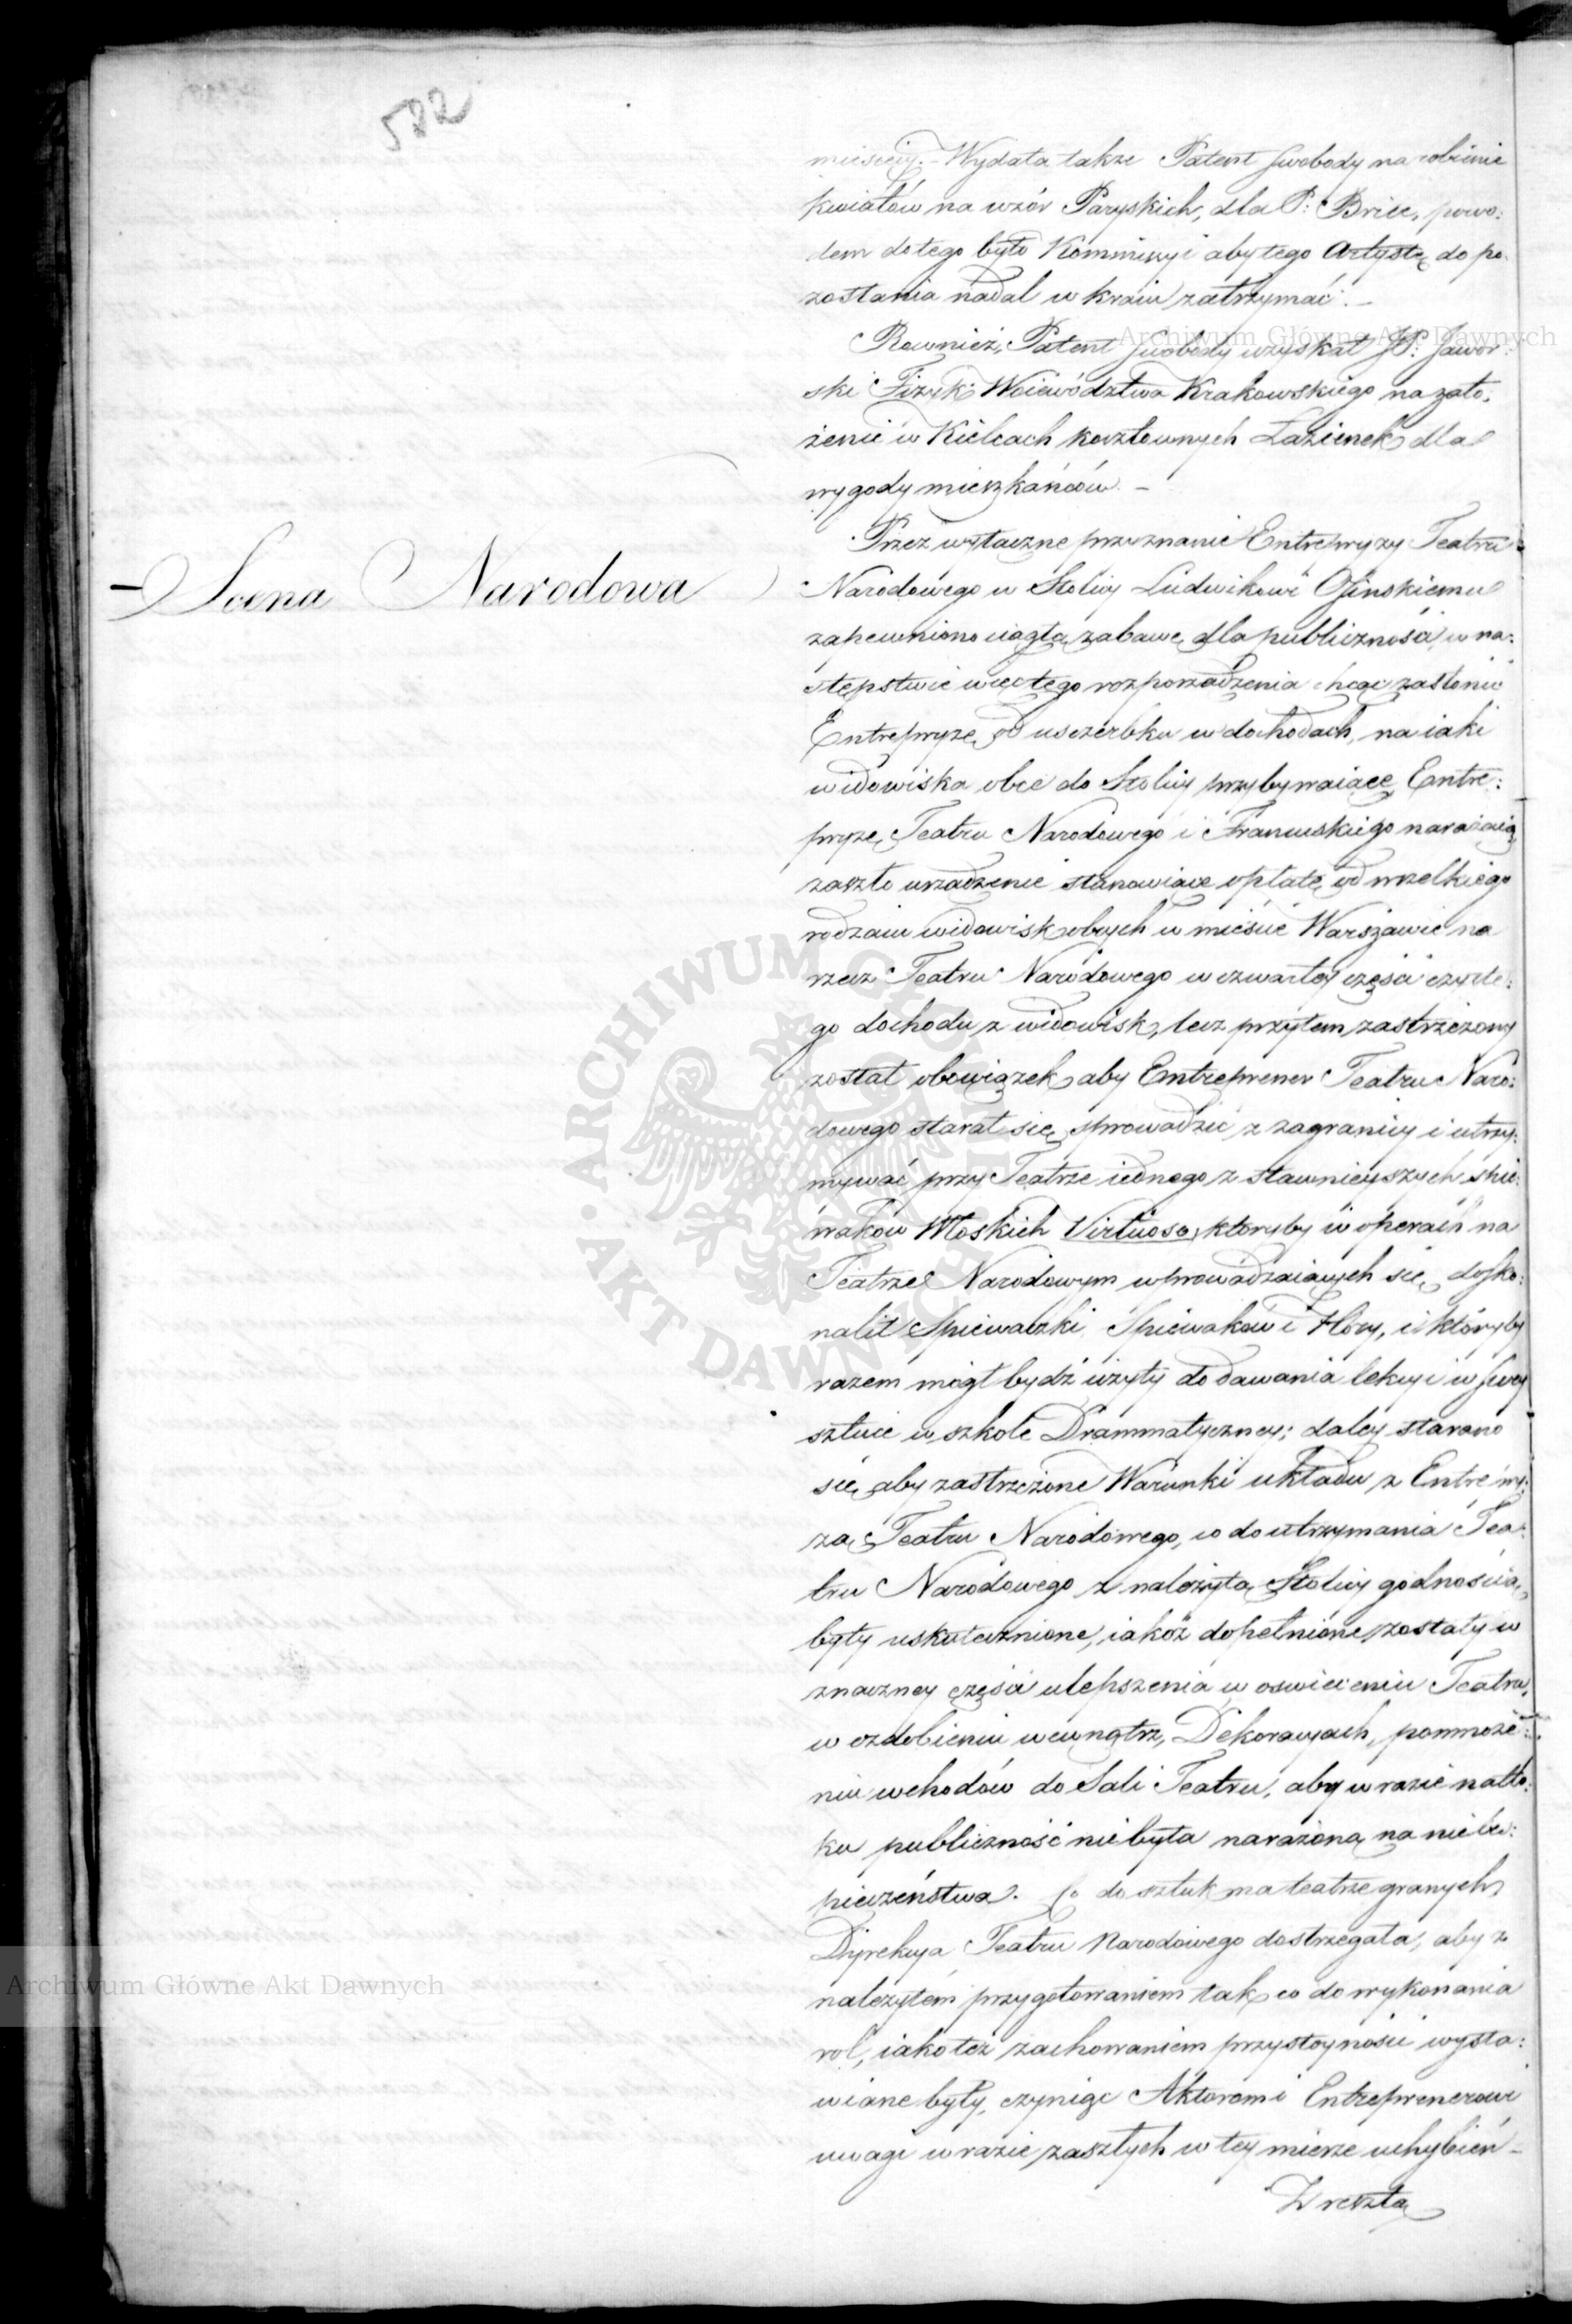 522
mieściły. – Wydała także Patent swobody na robienie
kwiatów na wzór Paryskich, dla P: Brice, powo:
dem do tego było Kommissyi aby tego Artystę do po:
zostania nadal w kraiu zatrzymać. –
Rownież, Patent swobody uzyskał JP: Jawor:
ski Fizyk Woiewództwa Krakowskiego na zało:
żenie w Kielcach kosztownych Łazienek dla
wygody mieszkańców. –
Scena Narodowa
Przez wyłączne przyznanie Entrepryzy Teatru
Narodowego w Stolicy Ludwikowi Osinskiemu
zapewniono ciągłą zabawę dla publiczności, w na:
stępstwie więc tego rozporządzenia chcąc zasłonić
Entrepryzę od uszczerbku w dochodach, na iaki
widowiska obce do Stolicy przybywaiące Entre:
pryzę Teatru Narodowego i Francuskiego narażaią
zaszło urządzenie stanowiące opłatę od wszelkiego
rodzaiu widowisk obcych w mieście Warszawie na
rzecz Teatru Narodowego w czwartey części czyste:
go dochodu z widowisk, lecz przytem zastrzeżony
został obowiązek aby Entreprener Teatru Naro:
dowego starał się sprowadzić z zagranicy i utrzy:
mywać przy Teatrze iednego z sławnieyszych śpie:
waków Włoskich Virtuoso, ktoryby w operach na
Teatrze Narodowym wprowadzaiących się dosko:
nalił Spiewaczki Spiewaków i Hory, i któryby
razem mógł bydź użyty do dawania lekcyi w swey
sztuce w szkole Drammatyczney; daley starano
się aby zastrzeżone Warunki układu z Entrepry:
zą Teatru Narodowego, co do utrzymania Tea:
tru Narodowego z należytą Stolicy godnością,
były uskutecznione, iakoż dopełnione zostały w
znaczney części ulepszenia w oswieceniu Teatru,
w ozdobieniu wewnątrz, Dekoracyach, pomnoże:
niu wchodów do Sali Teatru, aby w razie natło:
ku publiczność nie była narażoną na niebez:
pieczeństwa. Co do sztuk na teatrze granych
Dyrekcya Teatru Narodowego dostrzegała, aby z
należytém przygotowaniem tak co do wykonania
rol, iako też zachowaniem przystoyności wysta:
wiane były, czyniąc Aktorom i Entreprenerowi
uwagi w razie zaszłych w tey mierze uchybień –
Zresztą
Archiwum Główne Akt Dawnych
Archiwum Główne Akt Dawnych
ARCHIWUM GŁÓWNE AKT DAWNYCH